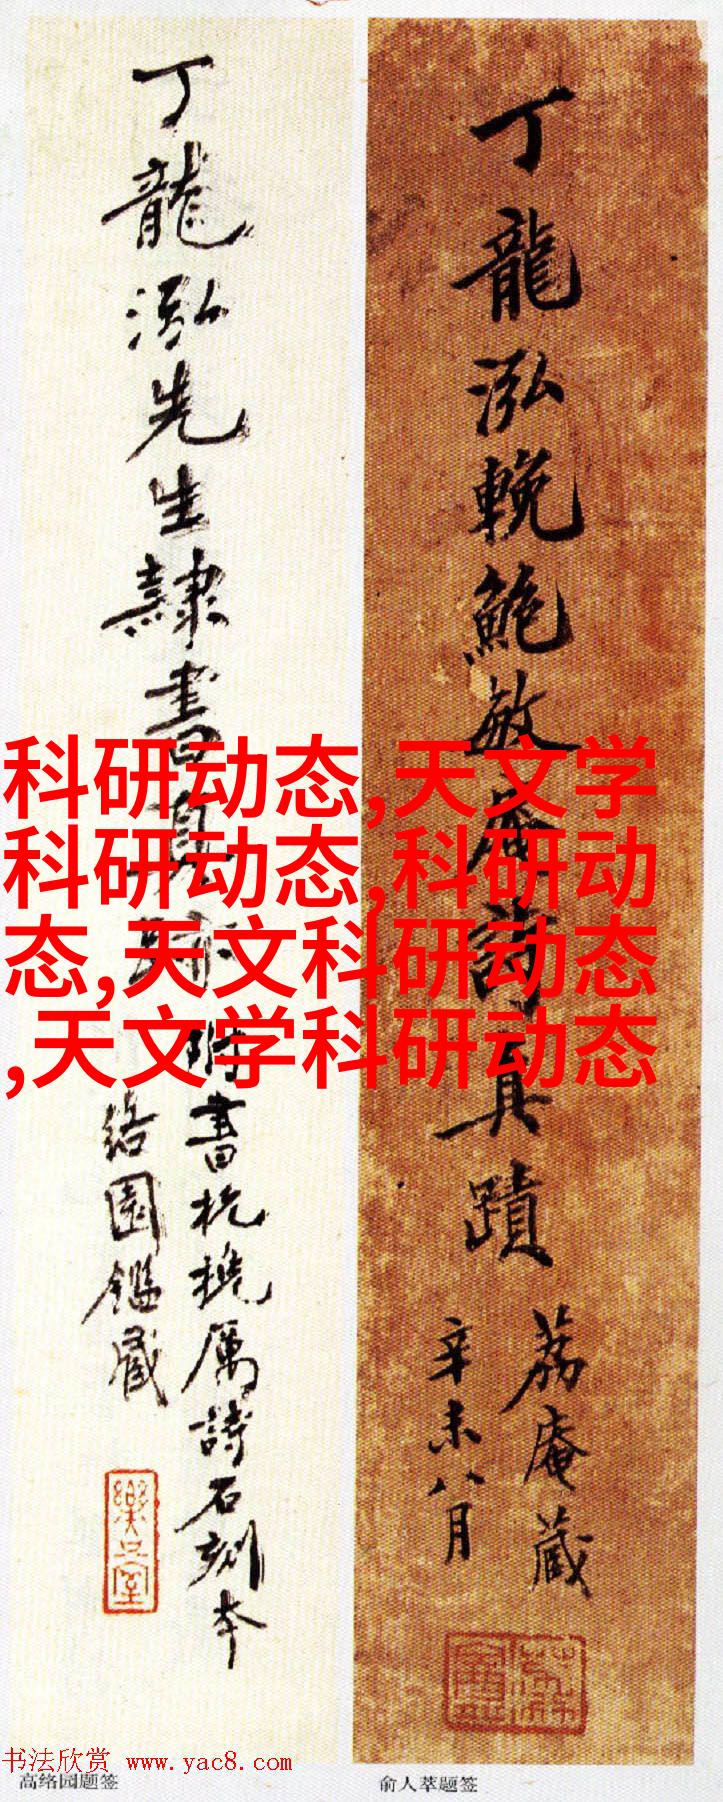 丁龍泓先生隸書真跡
附書杭櫆厲詩石刻本
絡園鑑藏
丁龍泓輓鮑敏庵詩真蹟
荔庵藏
辛未八月
科研动态,天文学
科研动态,科研动
态,天文科研动态
,天文学科研动态
书法欣赏 www.yac8.com
高络园题签
俞人萃题签